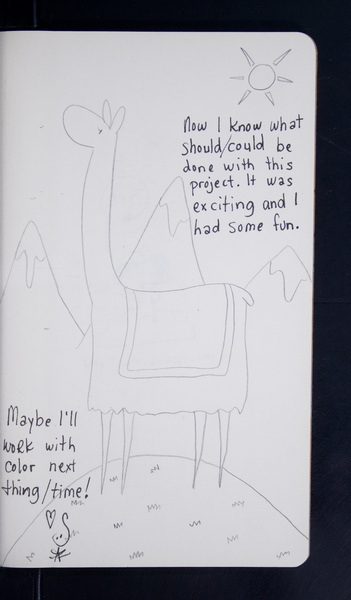 Now I know what
should/could be
done with this
project. It was
exciting and I
had some fun.
Maybe I'll
work with
color next
thing/time!